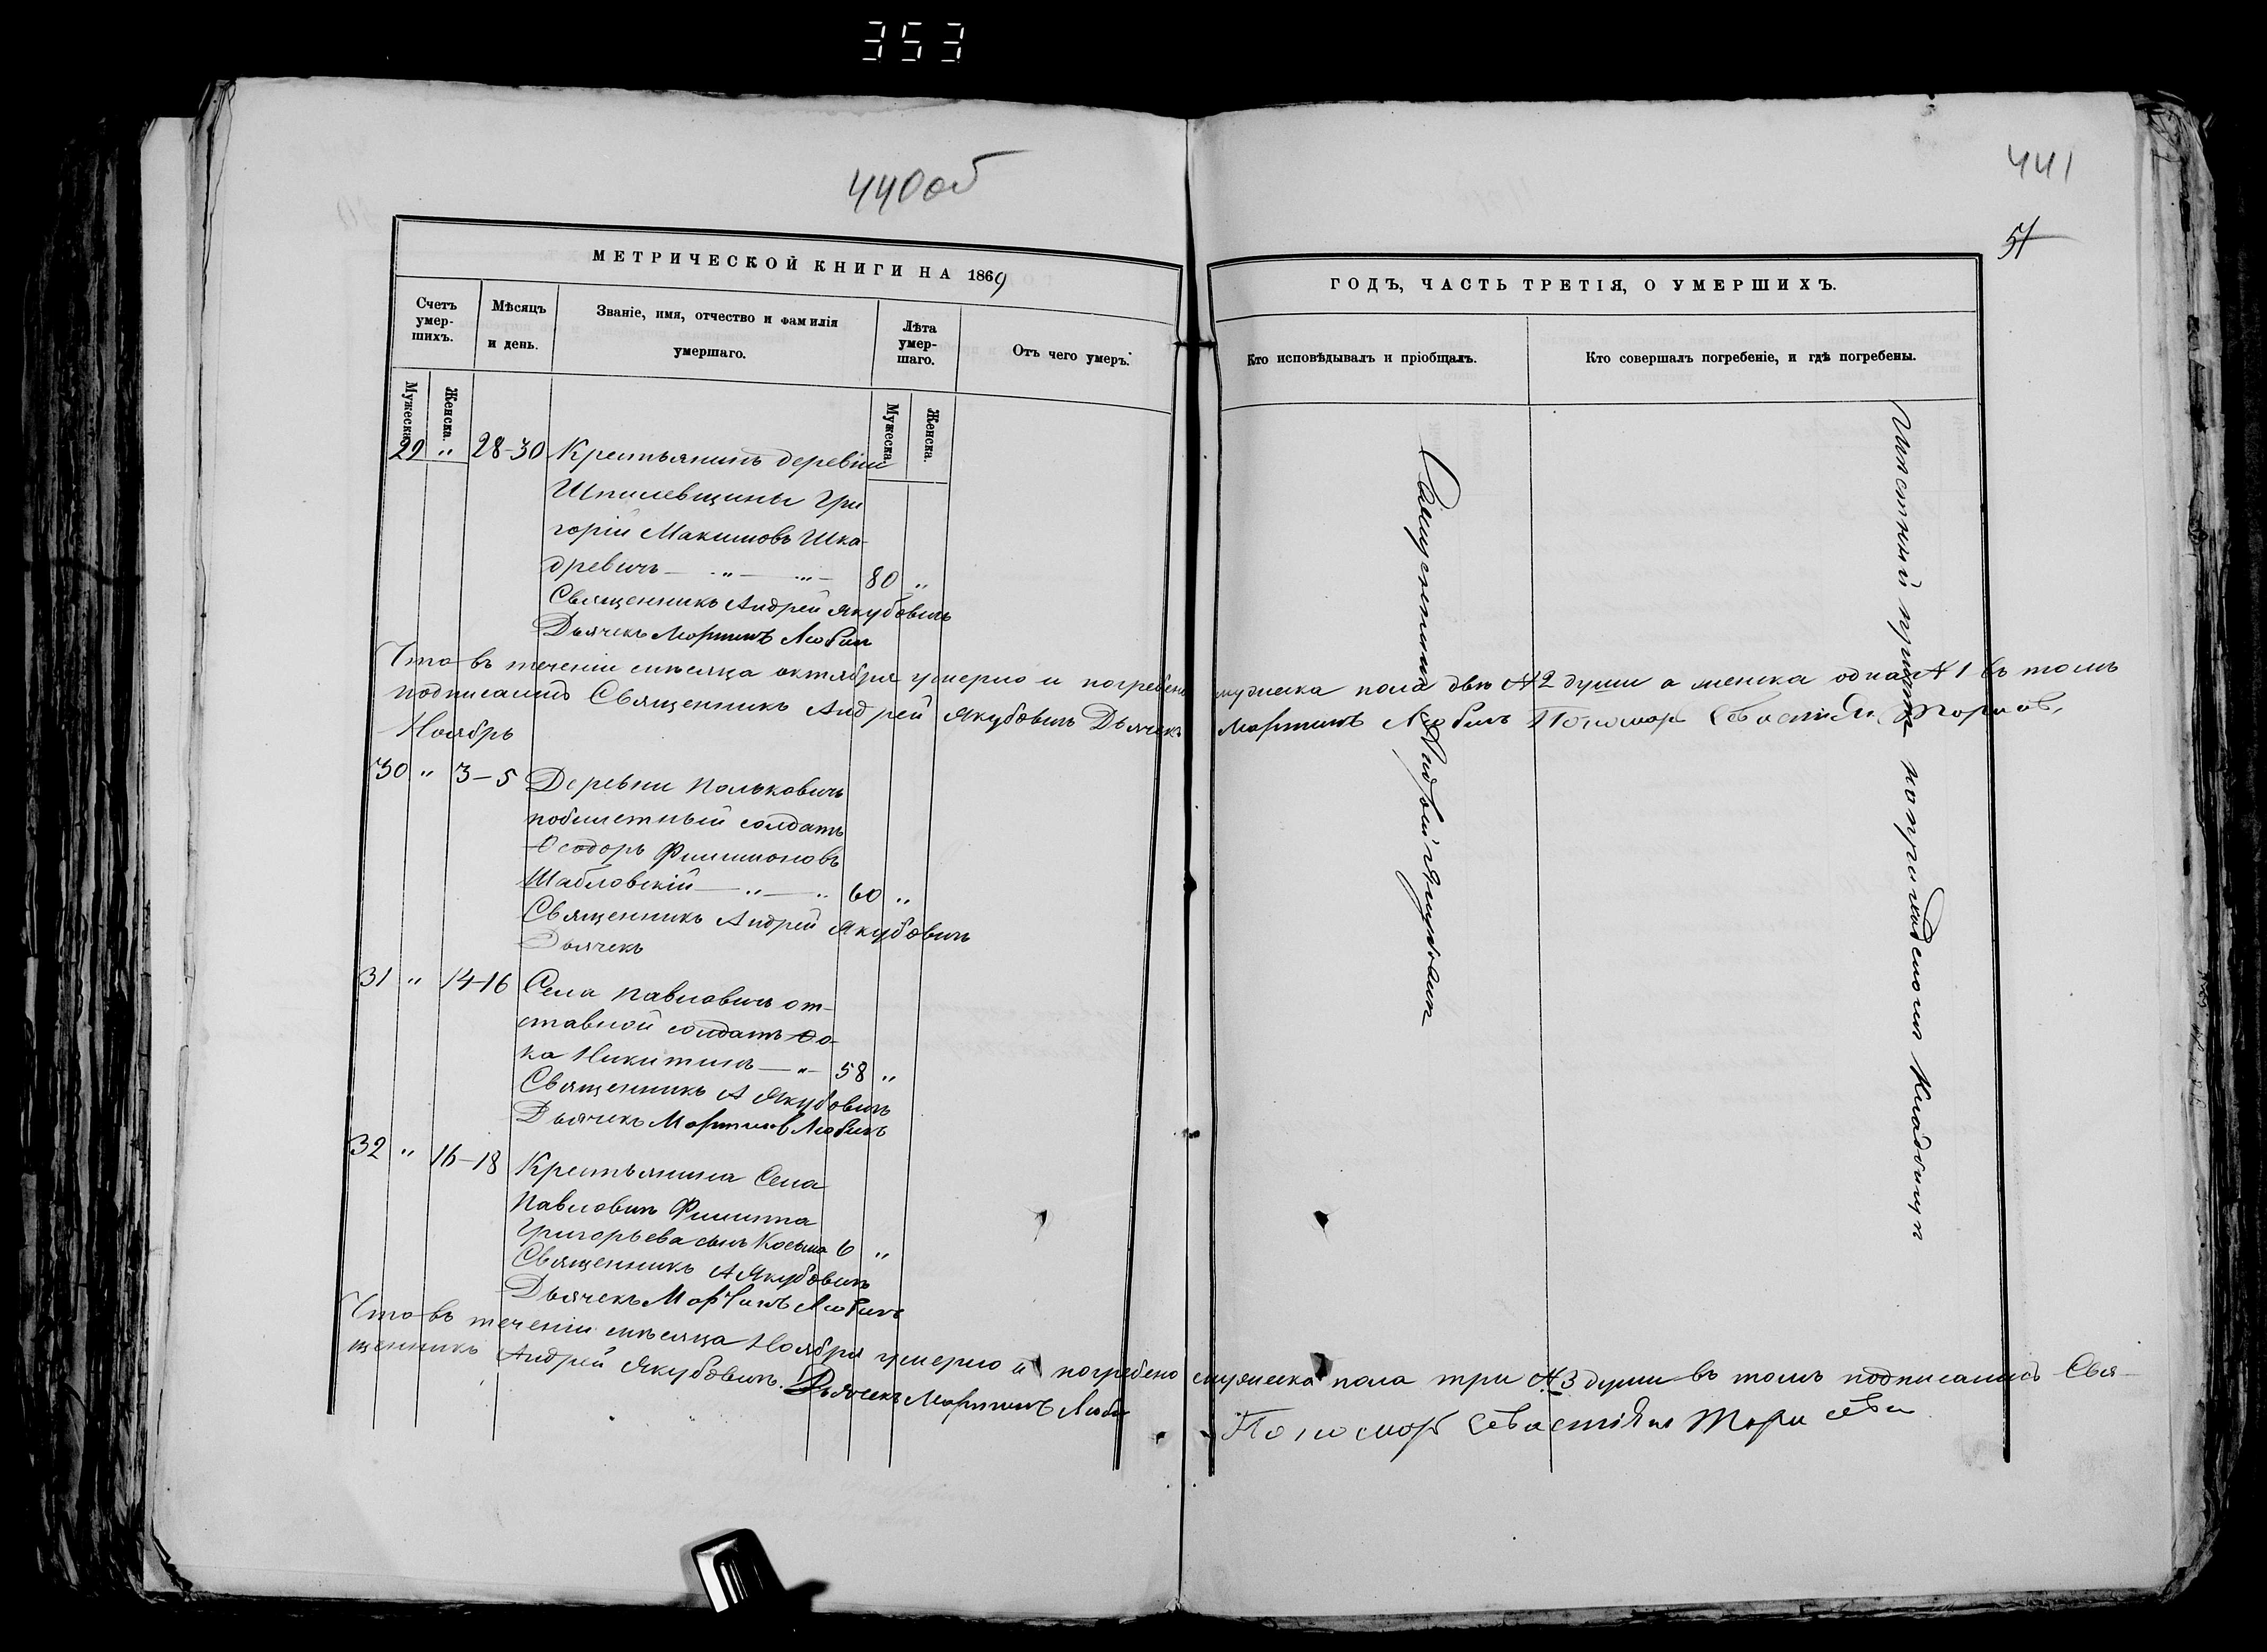 353
440об
441
51
МЕТРИЧЕСКОЙ КНИГИ НА 1869
ГОДЪ, ЧАСТЬ ТРЕТІЯ, О УМЕРШИХЪ.
Счетъ умер-шихъ.
Мѣсяцъ и день.
Званіе, имя, отчество и фамилія умершаго.
Лѣта умер-шаго.
Отъ чего умеръ.
Кто исповѣдывалъ и пріобщалъ.
Кто совершалъ погребеніе, и гдѣ погребены.
Мужеска.
Женска.
Мужеска.
Женска.
29 " 28-30 Крестьянинъ деревни
Шпилевщины Гри
горій Максимовъ Шка-
древичъ — " — " — 80 "
Священникъ Андрей Якубовичъ
Дьячекъ Мартинъ Любич
Что въ теченіи мѣсяца октября умерло и погребено мужеска пола двѣ №2 души а женска одна №1 въ томъ
подписались Священникъ Андрей Якубовичъ Дьячекъ Мартинъ Любичъ Пономарь
Ноябрь
30 " 3-5 Деревни Польковичъ
побилетный солдатъ
Ѳеодоръ Филимоновъ
Шабловскій — " — " 60 "
Священникъ Андрей Якубовичъ
Дьячекъ
31 " 14-16 Села Павловичъ от-
ставной солдатъ Ѳо-
ка Никитинъ — " — 58 "
Священникъ А Якубовичъ
Дьячекъ Мартинъ Любичъ
32 " 16-18 Крестьянина Села
Павловичъ Филиппа
Григорьева сынъ Косьма 6 "
Священникъ А Якубовичъ
Дьячекъ Мартинъ Любичъ
Что въ теченіи мѣсяца Ноября умерло и погребено мужеска пола три №3 души въ томъ подписались Свя-
щенникъ Андрей Якубовичъ. Дьячекъ Мартинъ Люби
Пономарь
Священникъ Андрей Якубович
Мѣстный причтъ на приходскомъ Кладбищѣ